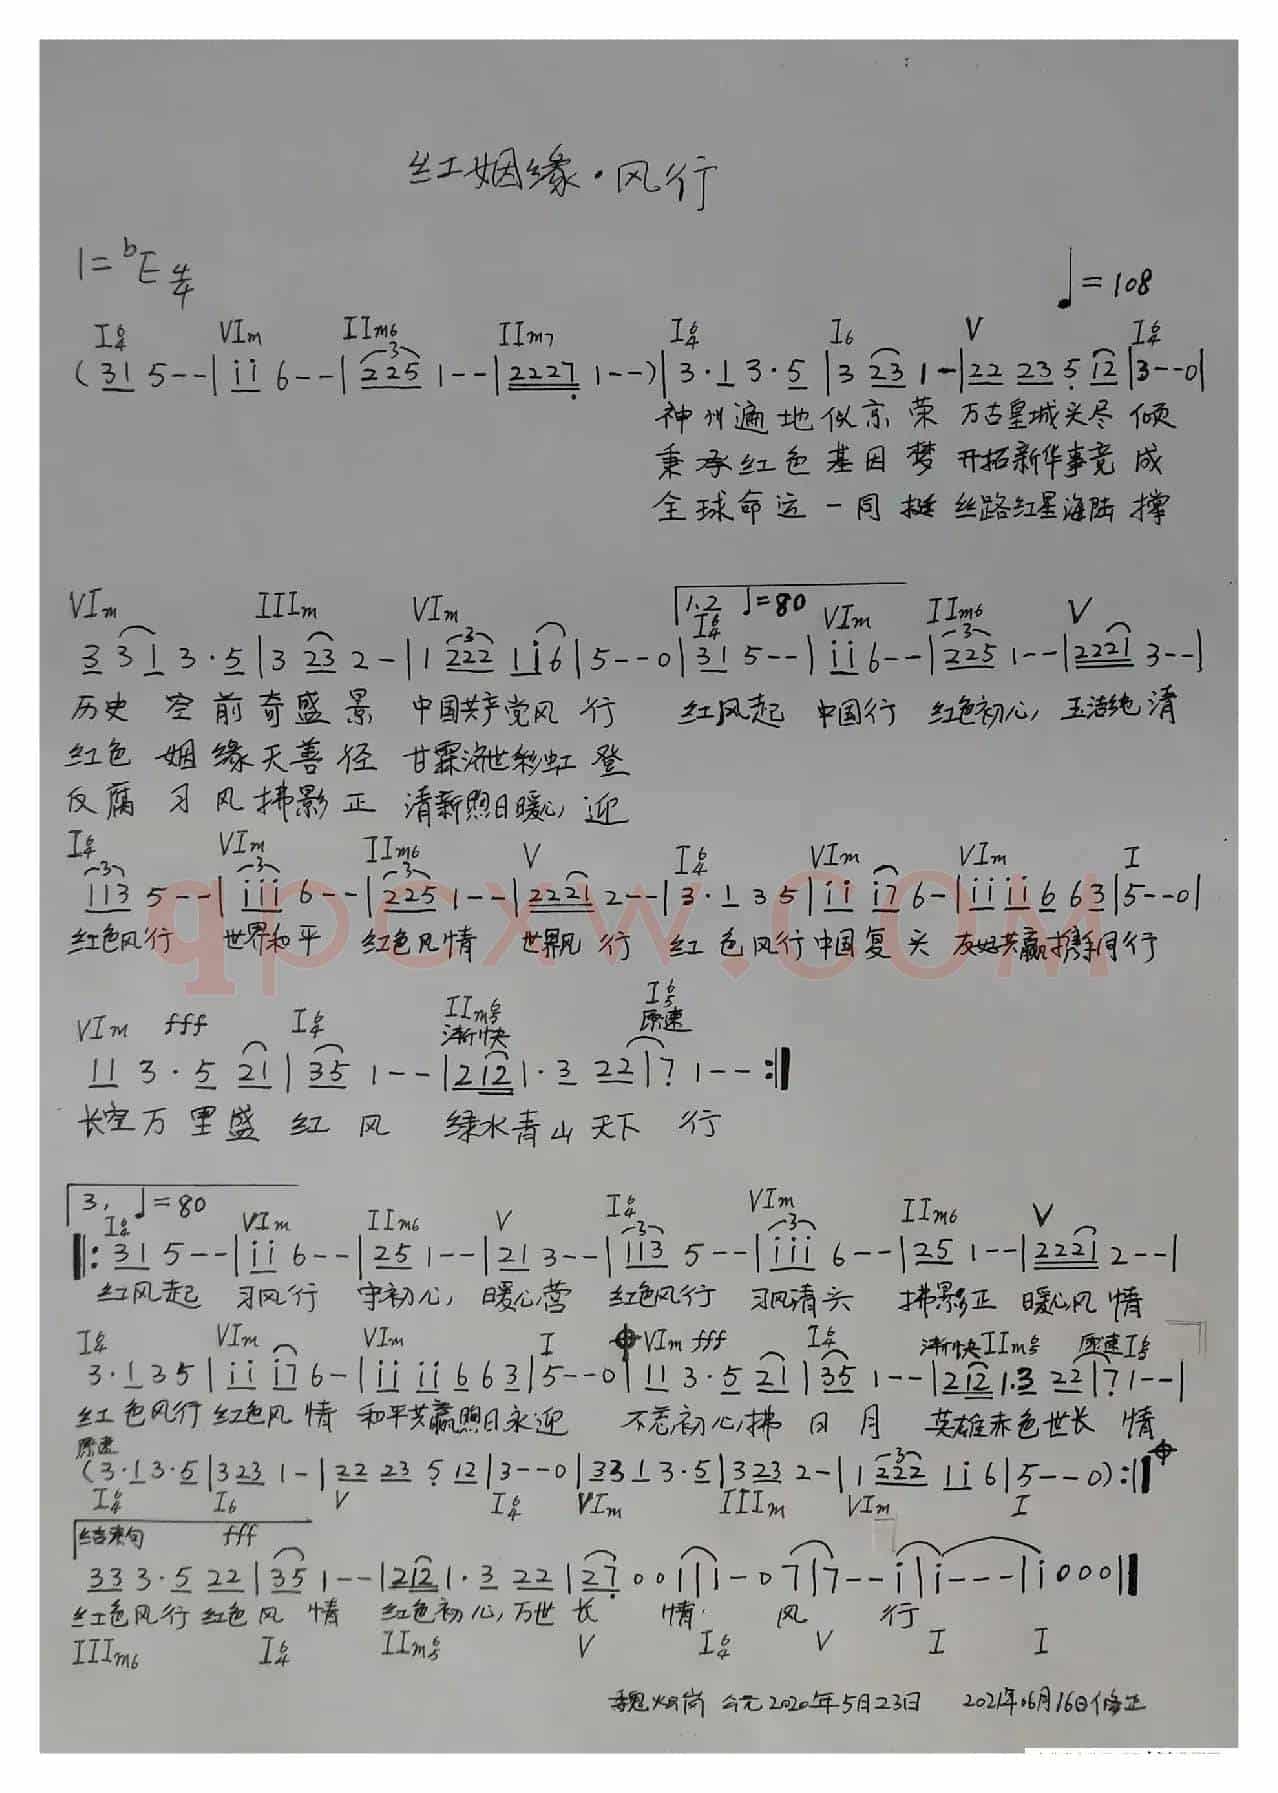 红姻缘·风行
1=ᵇE 4/4
♩=108
I6/4 VIm IIm6 IIm7 I6/4 I6 V I6/4
(31 5--|ii 6--|225 1--|2227 1--)|3·1 3·5|3 23 1-|22 23 5 12|3--0|
神州遍地似京荣 万古皇城关尽倾
秉承红色基因梦 开拓新华事竟成
全球命运一同挺 丝路红星海陆撑
VIm IIIm VIm 1.2 ♩=80 I6/4 VIm IIm6 V
3 31 3·5|3 23 2-|1 222 1i6|5--0|31 5--|ii 6--|225 1--|2221 3--|
历史空前奇盛景 中国共产党风行 红风起 中国行 红色初心 玉洁纯清
红色姻缘天善径 甘霖洛世彩虹登
反腐习风拂影正 清新煦日暖心迎
I6/4 VIm IIm6 V I6/4 VIm VIm I
113 5--|iii 6--|225 1--|2221 2--|3·1 35|ii i7 6-|ii ii 6 63|5--0|
红色风行 世界和平 红色风情 世界风行 红色风行中国复兴 友好共赢携手同行
qpcxw.com
VIm fff I6/4 IIm6/5 渐快 I6/5 原速
11 3·5 21|35 1--|212 1·3 22|7 1--:|
长空万里盛红风 绿水青山天下行
3. ♩=80
I6/4 VIm IIm6 V I6/4 VIm IIm6 V
|:31 5--|ii 6--|25 1--|21 3--|113 5--|iii 6--|25 1--|2221 2--|
红风起 习风行 守初心 暖心营 红色风行 习风清关 拂影正 暖心风情
I6/4 VIm VIm I VIm fff I6/4 渐快 IIm6/5 原速 I6/5
3·1 35|ii i7 6-|ii ii 6 63|5--0|11 3·5 21|35 1--|212 1·3 22|7 1--|
红色风行 红色风情 和平共赢煦日永迎 不忘初心拂日月 英雄赤色世长情
原速
(3·1 3·5|323 1-|22 23 5 12|3--0|33 1 3·5|323 2-|1 222 1i 6|5--0):|
I6/4 I6 V I6/4 VIm IIIm VIm I
结束句 fff
33 3·5 22|35 1--|212 1·3 22|27 00i|i-07|7--i|i---|i000|
红色风行红色风情 红色初心万世长情 风行
IIIm6 I6/4 IIm6/5 V I6/4 V I I
公元2020年5月23日 2021年06月16日修正